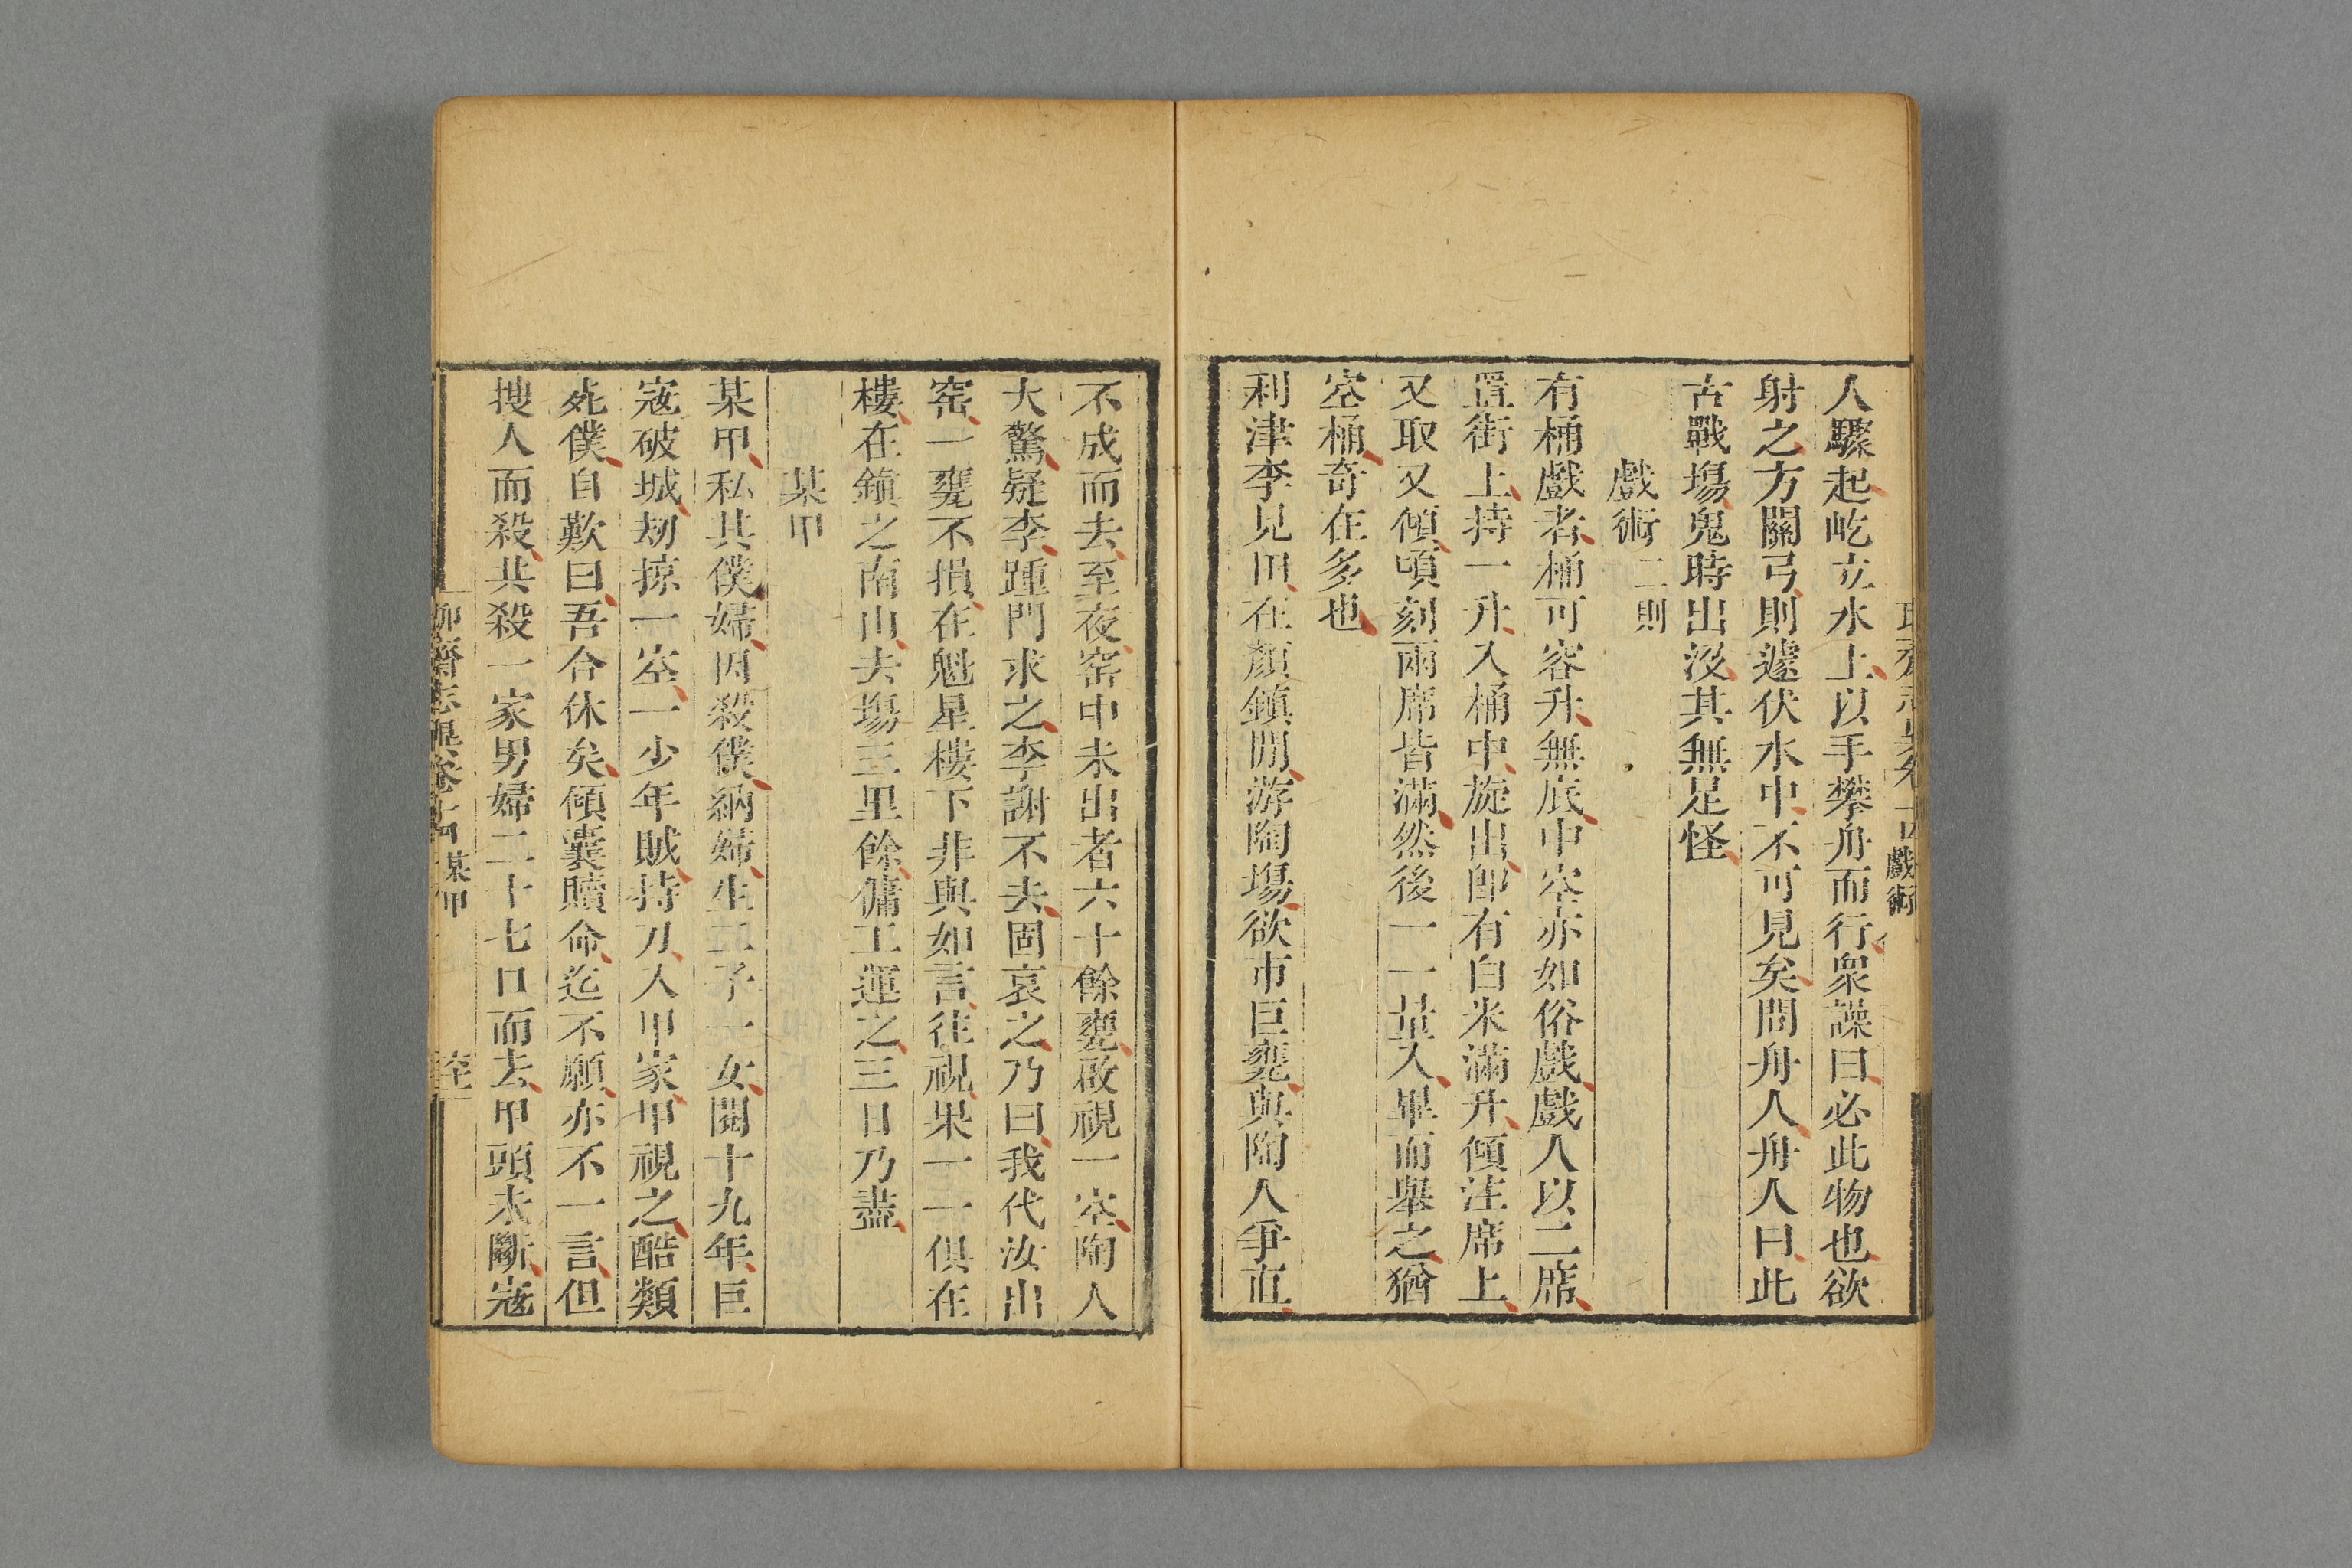 人驟起屹立水上以手攀舟而行衆譟曰必此物也欲
射之方關弓則遽伏水中不可見矣問舟人舟人曰此
古戰塲鬼時出沒其無足怪
戲術二則
有桶戲者桶可容升無底中空亦如俗戲戲人以二席
置街上持一升入桶中旋出卽有白米滿升傾注席上
又取又傾頃刻兩席皆滿然後一一量入畢而舉之猶
空桶奇在多也
利津李見田在顏鎮閒游陶塲欲市巨甕與陶人爭直
不成而去至夜窑中未出者六十餘甕啟視一空陶人
大驚疑李踵門求之李謝不去固哀之乃曰我代汝出
窑一甕不損在魁星樓下非與如言往視果一一俱在
樓在鎮之南山去塲三里餘傭工運之三日乃盡
某甲
某甲私其僕婦因殺僕納婦生二子一女閱十九年巨
寇破城刼掠一空一少年賊持刀入甲家甲視之酷類
死僕自歎曰吾合休矣傾囊贖命迄不願亦不一言但
搜人而殺共殺一家男婦二十七口而去甲頭未斷寇
聊齋志異卷十 某甲
戲術